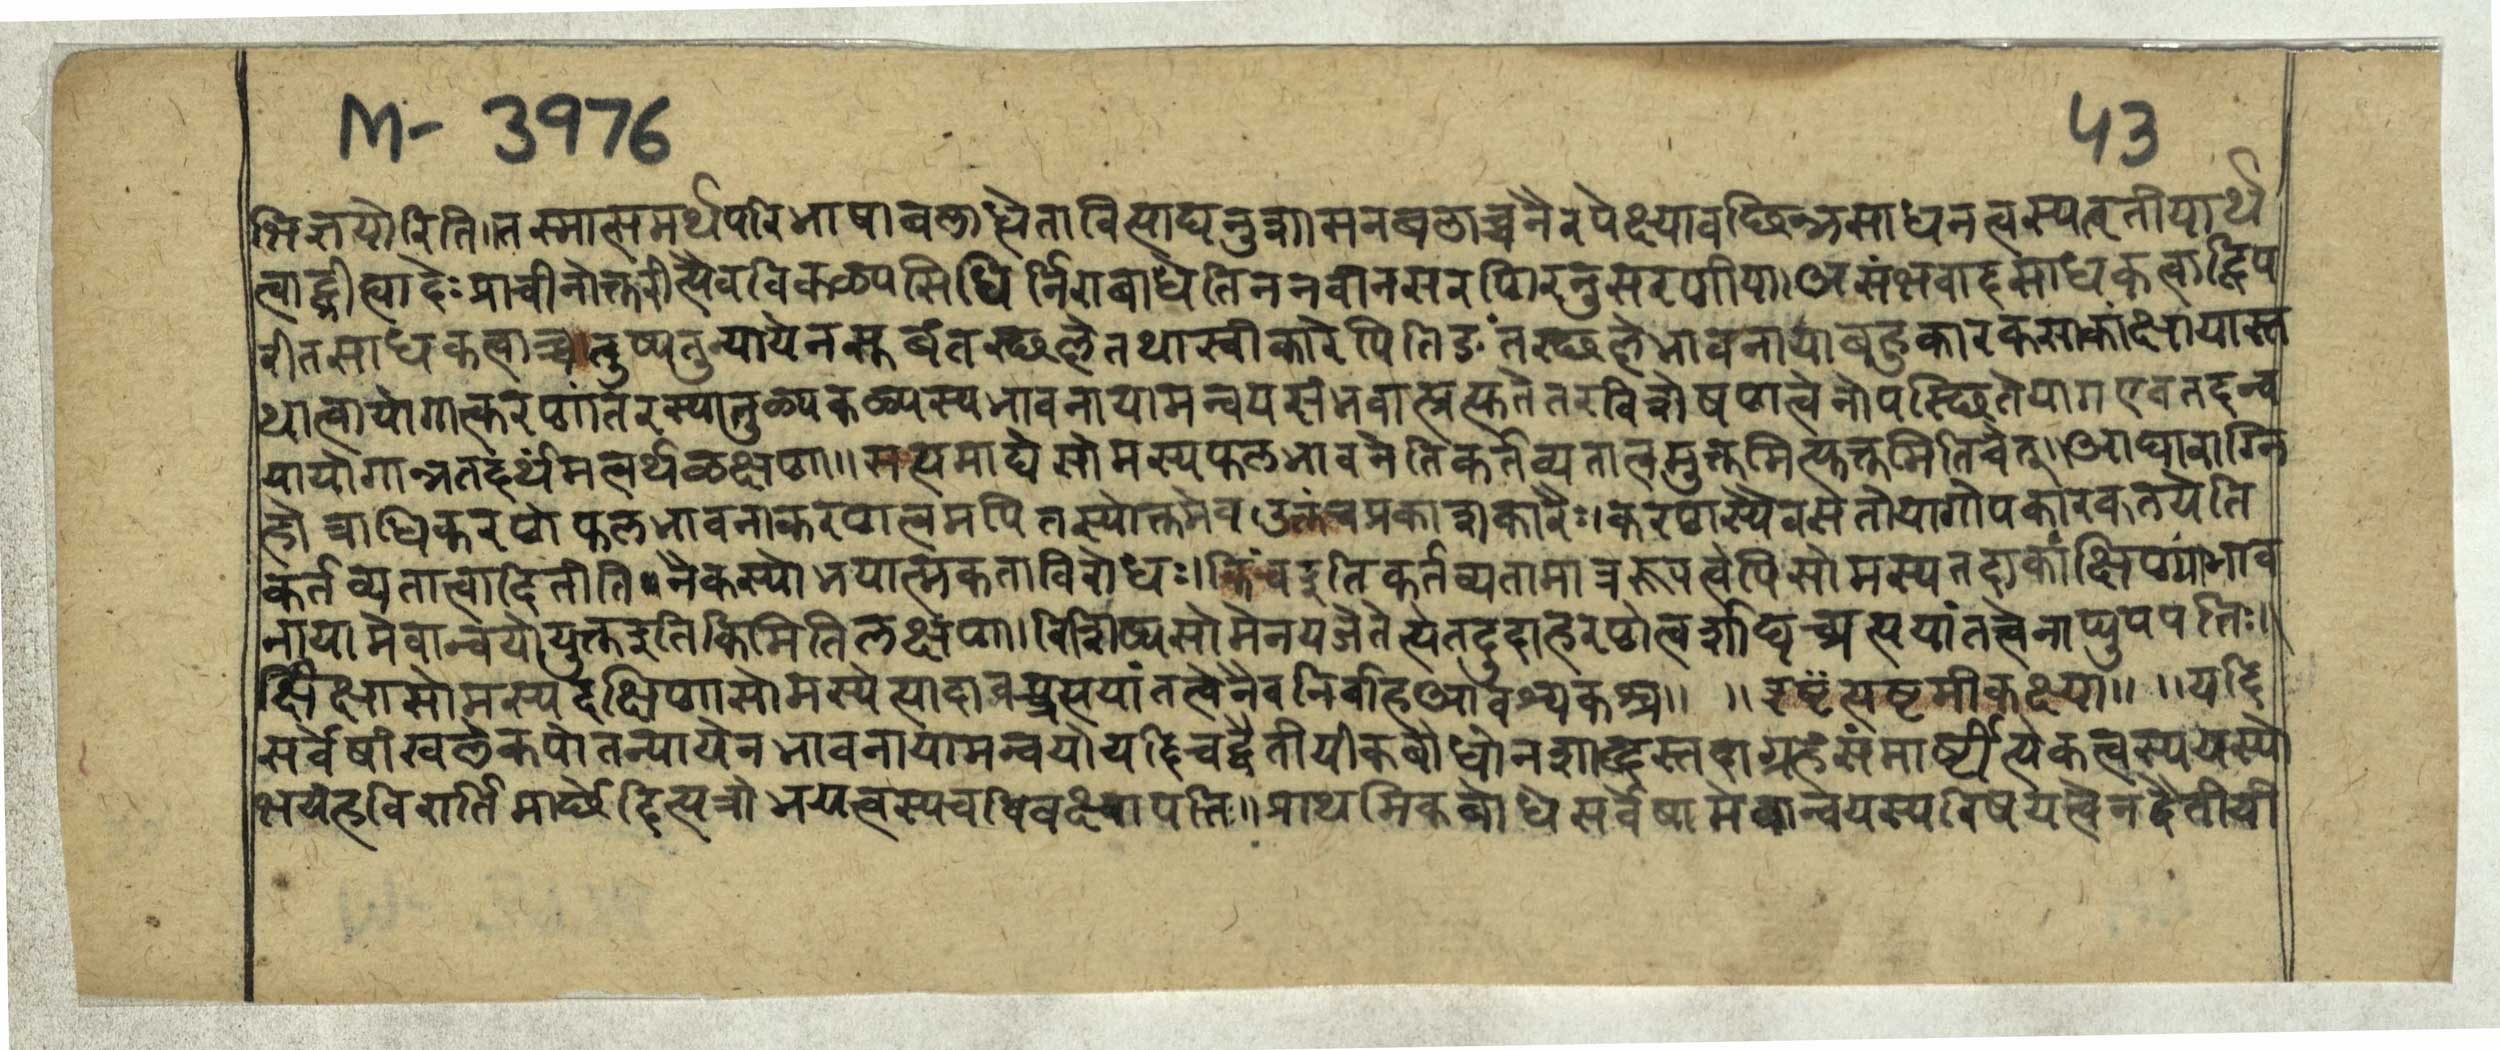 M- 3976
43
भिन्नयोरिति॥तस्मात्समर्थपरिभाषाबलाच्चैतावित्याद्यनुशासनबलाच्चनैरपेक्ष्यावछिन्नसाधनत्वस्यतृतीयार्थ
त्वाद्व्रीह्यादेःप्राचीनोक्तरीत्यैवविकळ्पसिद्धिर्निराबाधेतिननवीनसरणिरनुसरणीया।असंभवादसाधकत्वाद्विप
रीतसाधकत्वाच्चतुष्यतुन्यायेनसुबंतस्छलेतथास्वीकारेपितिङंतस्छलेभावनायाबहुकारकसाकांक्षायास्त
थात्वायोगात्करणांतरस्यातुळ्यकळ्पस्यभावनायामन्वयसंभवात्प्रत्कृतेतरविशेषणत्वेनोपस्छितेयागएवतदन्व
यायोगान्नतदर्थंमत्वर्थळक्षणा॥सत्यमाद्येसोमस्यफलभावनेतिकर्तव्यतात्वमुक्तमित्युक्तमितिचेत्।आद्यावाग्नि
होत्राधिकरणेफलभावनाकरणत्वमपितस्योक्तमेवउक्तंचप्रकाशकारैः।करणस्यैवसतोयागोपकारकतयेति
कर्तव्यतात्वादितीति।नैकस्योभयात्मकताविरोधः।किंचइतिकर्तव्यतामात्ररूपत्वेपिसोमस्यतदाकांक्षिण्यांभाव
नायामेवान्वयोयुक्तइतिकिमितिलक्षणा।विशिष्यसोमेनयजेतेत्येतदुदाहरणेत्वशाद्यच्प्रत्ययांतत्वेनाप्युपपत्तिः।
क्षिक्षासोमस्यदक्षिणासोमस्येत्यादावप्प्रत्ययांतत्वेनैवनिर्वाहआवश्यकश्च॥ ॥इष्टंत्यष्टमीकक्ष्या॥ ॥यदि
सर्वेषांखलेकपोतन्यायेनभावनायामन्वयोयदिचद्वैतीयीकबोधोनशाब्दस्तदाग्रहंसंमार्ष्टीत्येकत्वस्ययस्यो
भयंहविरार्तिमार्च्छेदित्यत्रोभयत्वस्यचविवक्षापत्तिः॥प्राथमिकबोधेसर्वेषामेवान्वयस्यविषयत्वेनद्वैतीयी